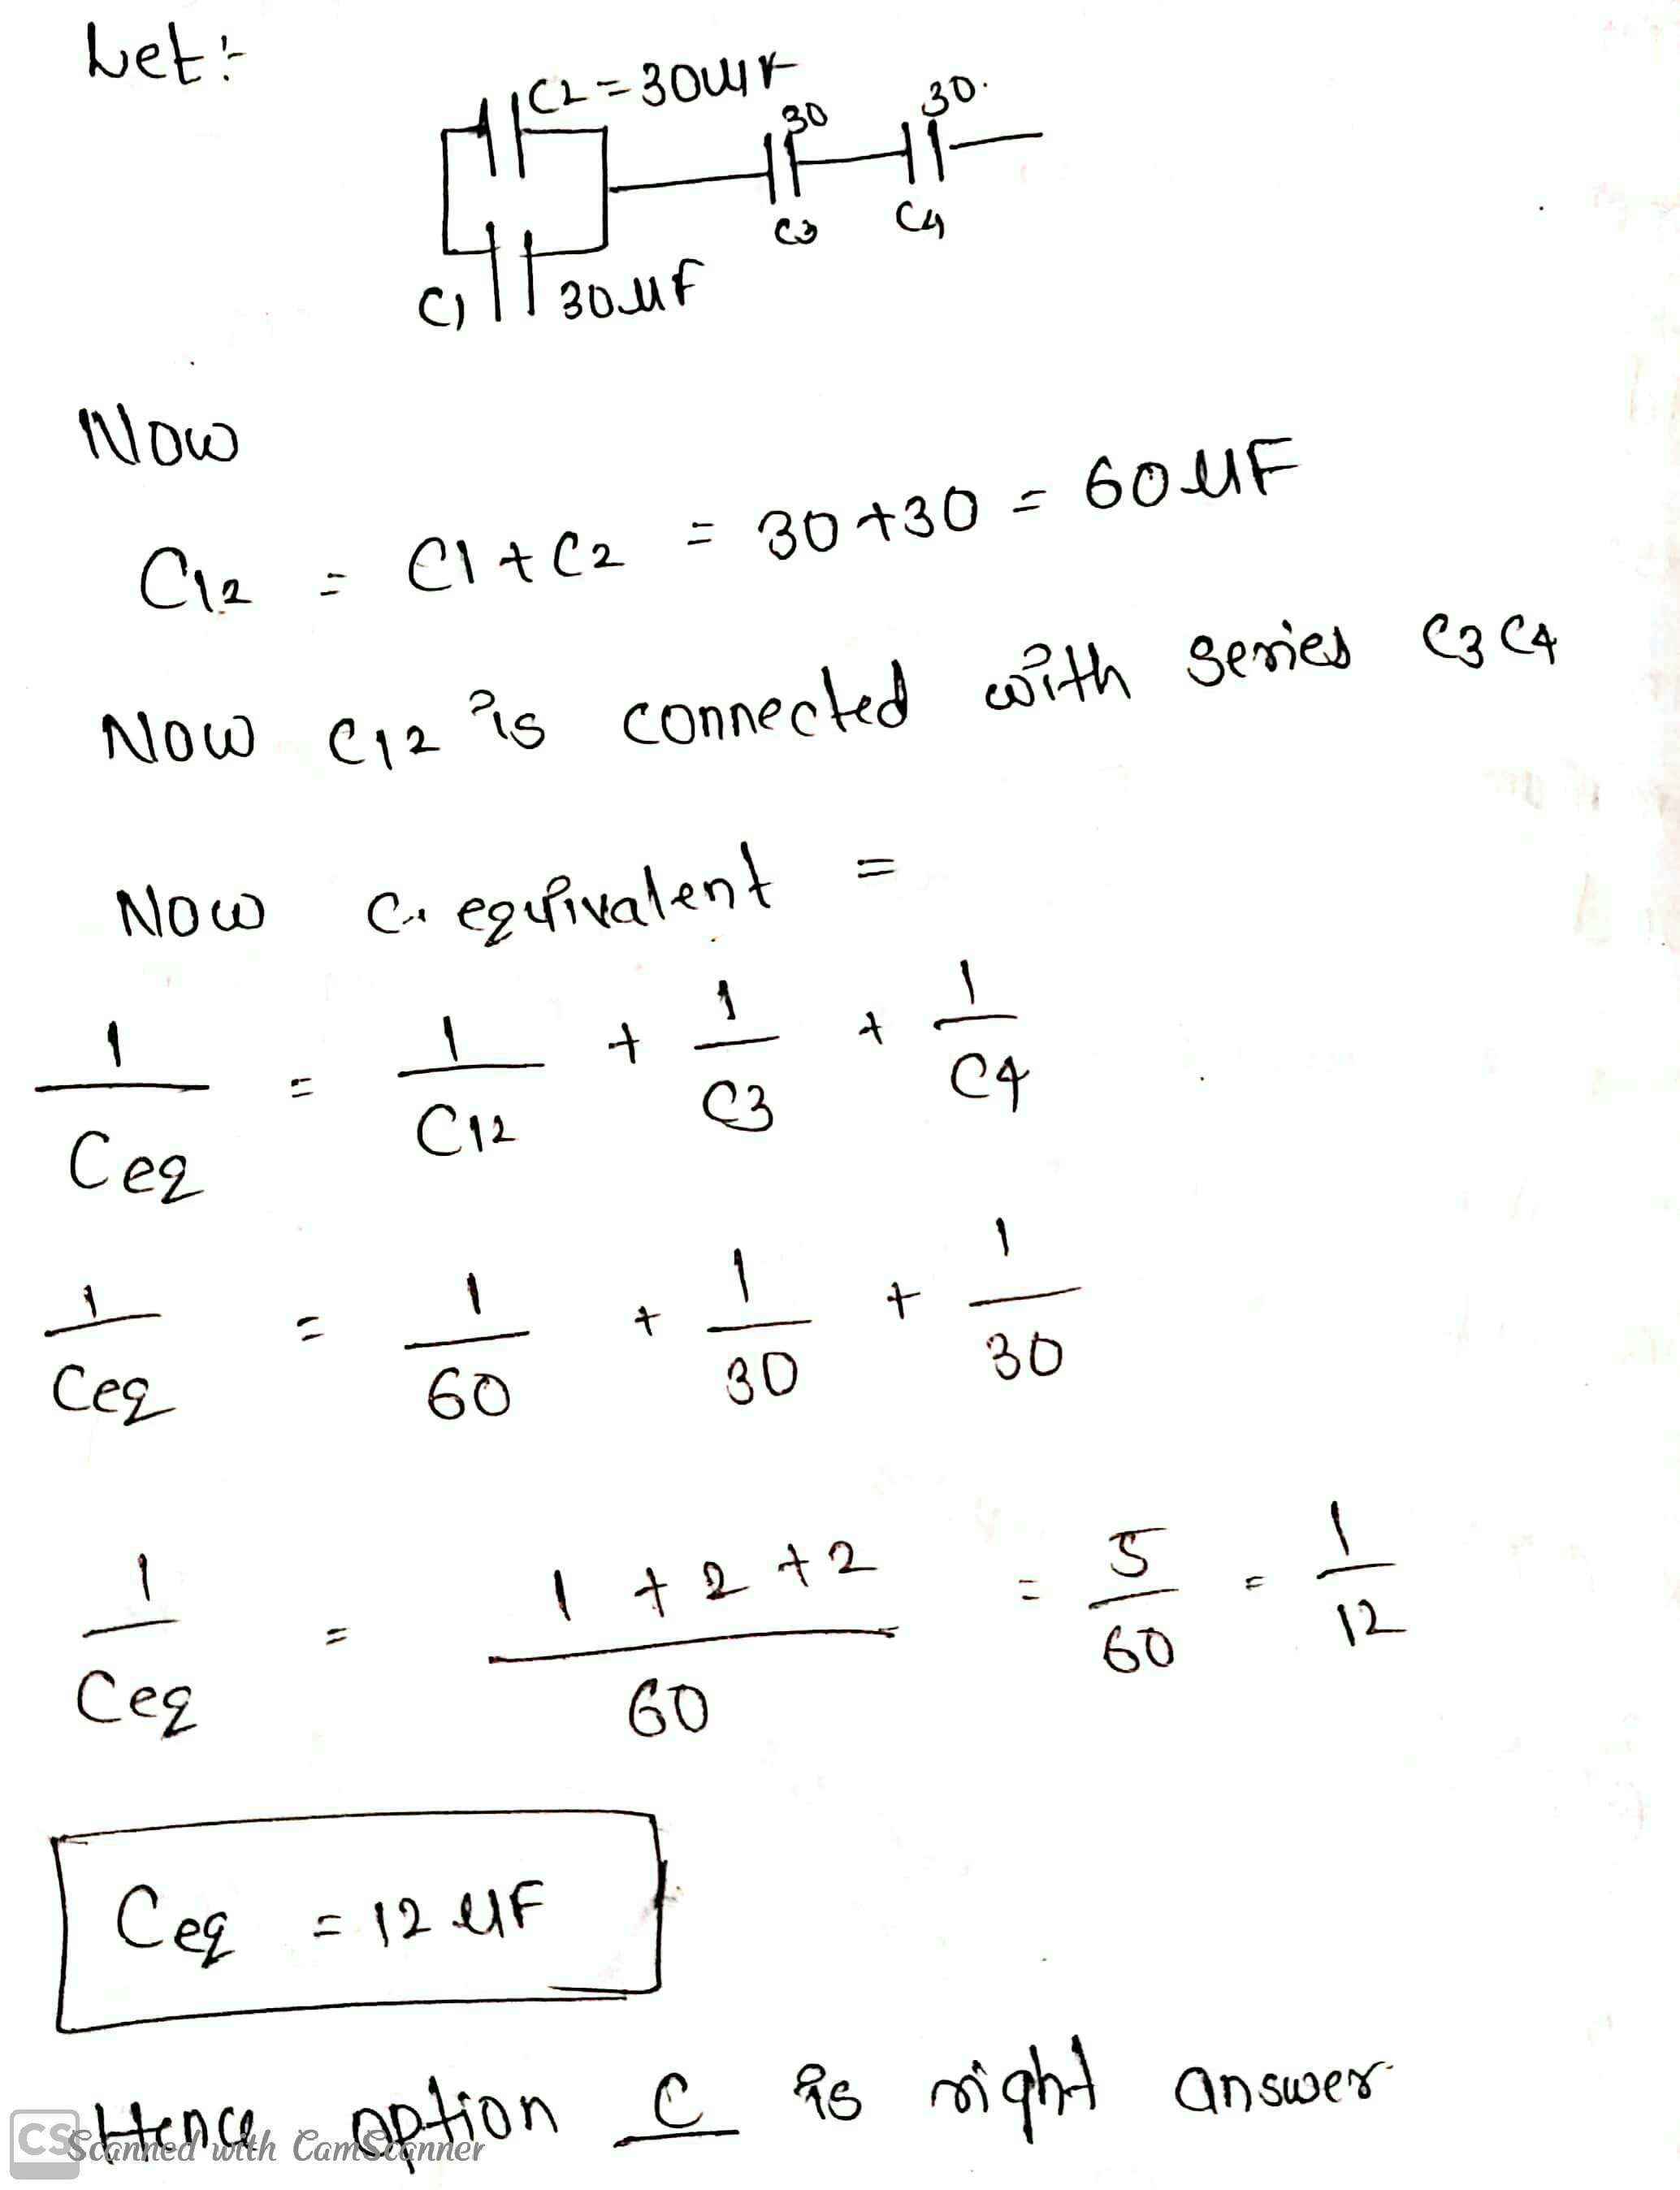 Let:-
C2 = 30μF
30 30.
C3 C4
C1 30μF
Now
C12 = C1 + C2 = 30 + 30 = 60 μF
Now C12 is connected with series C3 C4
Now C. equivalent =
1/Ceq = 1/C12 + 1/C3 + 1/C4
1/Ceq = 1/60 + 1/30 + 1/30
1/Ceq = 1 + 2 + 2/60 = 5/60 = 1/12
Ceq = 12 μF
Hence option C is right answer
CS Scanned with CamScanner